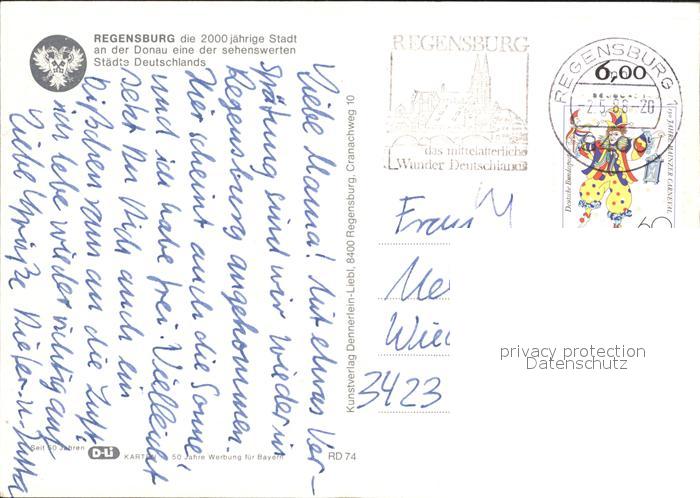 REGENSBURG die 2000 jährige Stadt
an der Donau eine der sehenswerten
Städte Deutschlands
Liebe Mama! Mit etwas Ver-
spätung sind wir wieder in
Regensburg angekommen.
Hier scheint auch die Sonne
und ich habe frei. Vielleicht
setzt Du Dich auch ein
bißchen raus an die Luft.
Ich lebe wieder richtig auf
Liebe Grüße Dieter u. Jutta
Seit 50 Jahren
D-Li
KARTEN
50 Jahre Werbung für Bayern
RD 74
Kunstverlag Dennerlein-Liebl, 8400 Regensburg, Cranachweg 10
REGENSBURG
das mittelalterliche
Wunder Deutschlands
REGENSBURG
6,00
-2.5.88-20
Deutsche Bundespost
150 JAHRE MAINZER CARNEVAL
60
Frau
Me
Wie
3423
privacy protection
Datenschutz